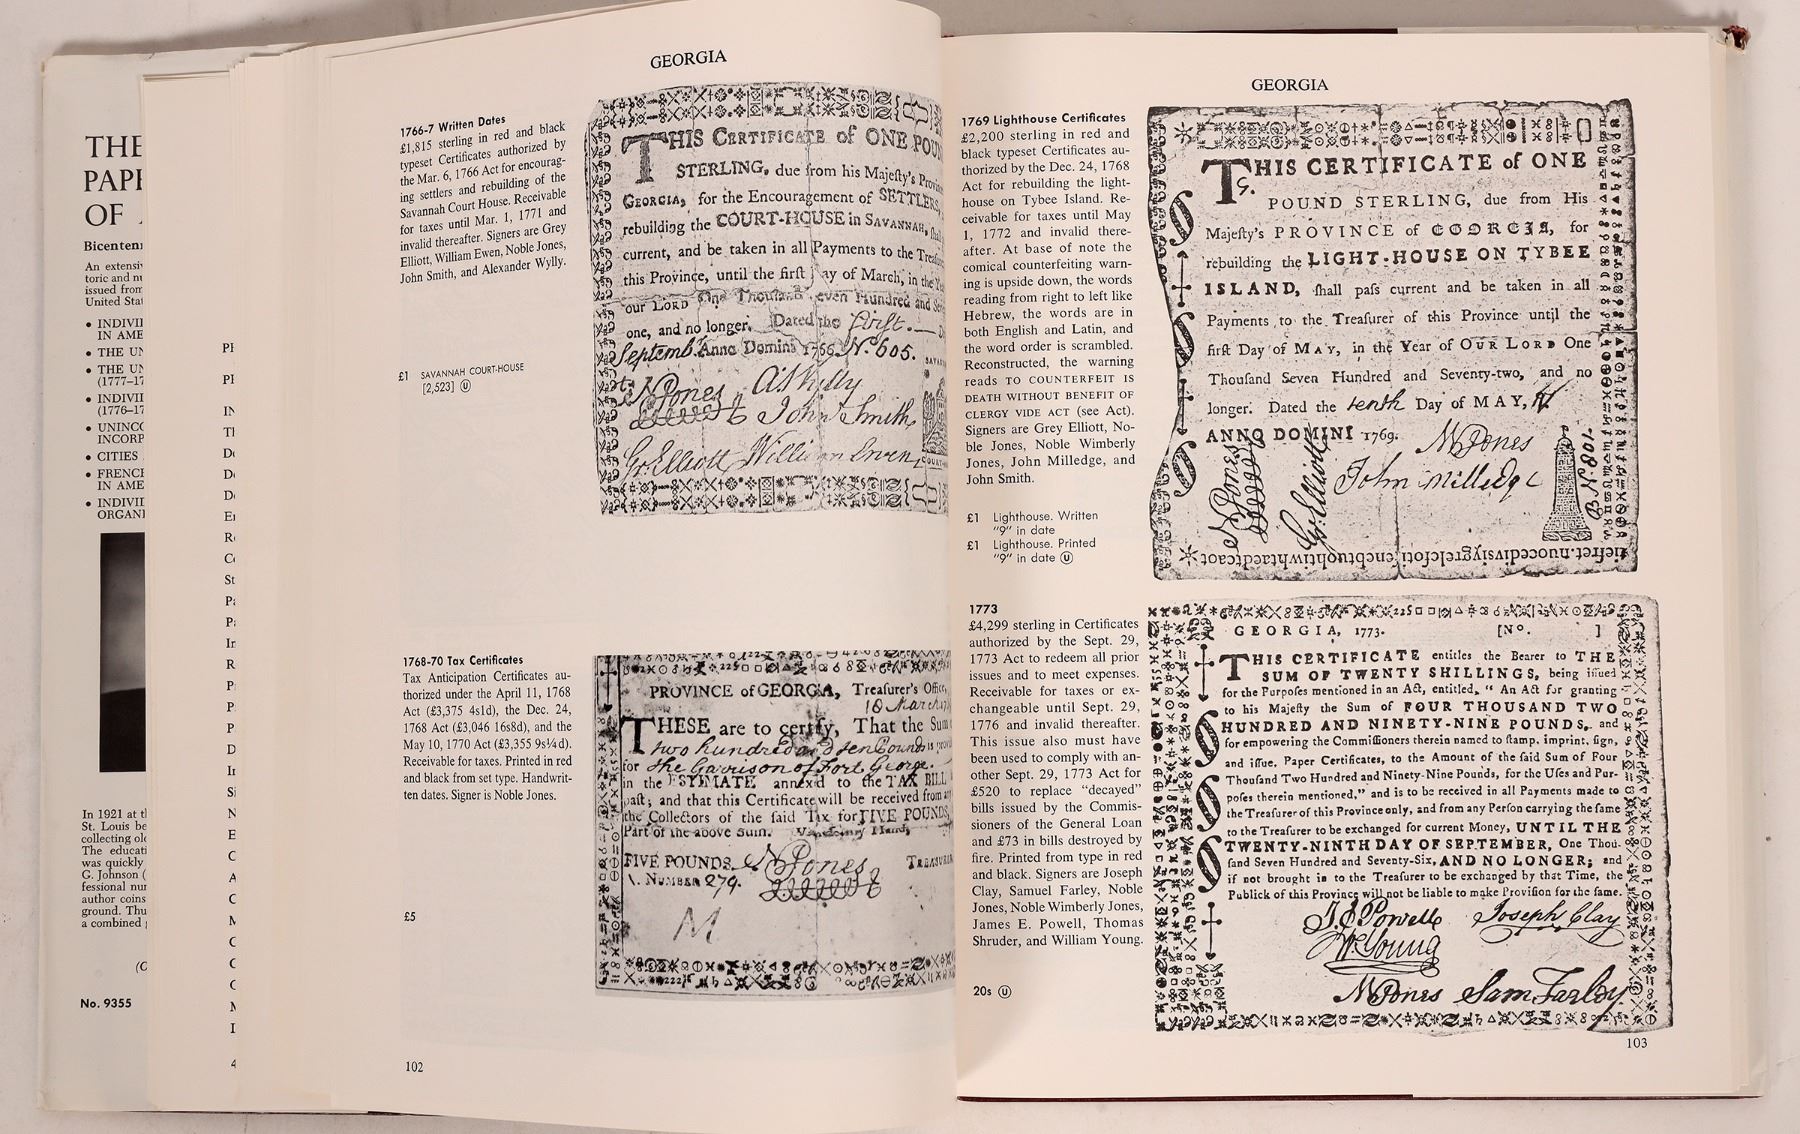 THE
PAP
OF
Bicenten
An extensiv
toric and nu
issued from
United Stat
• INDIVII
IN AME
• THE UN
• THE UN
(1777–17
• INDIVII
(1776–17
• UNINCO
INCORP
• CITIES
• FRENCH
IN AME
• INDIVII
ORGANI
In 1921 at th
St. Louis be
collecting old
The educati
was quickly
G. Johnson (
fessional nu
author coins
ground. Thu
a combined
No. 9355
GEORGIA
1766-7 Written Dates
£1,815 sterling in red and black
typeset Certificates authorized by
the Mar. 6, 1766 Act for encourag-
ing settlers and rebuilding of the
Savannah Court House. Receivable
for taxes until Mar. 1, 1771 and
invalid thereafter. Signers are Grey
Elliott, William Ewen, Noble Jones,
John Smith, and Alexander Wylly.
£1 SAVANNAH COURT-HOUSE
[2,523] Ⓤ
THIS CERTIFICATE of ONE POUN
STERLING, due from his Majesty's Provin
GEORGIA, for the Encouragement of SETTLERS,
rebuilding the COURT-HOUSE in SAVANNAH, shall
current, and be taken in all Payments to the Treasu
this Province, until the first ay of March, in the Y
our LORD One Thousand even Hundred and Sev
one, and no longer. Dated the First.
Septemb. Anno Domini 1766. No. 605.
N Jones A Wylly
John Smith
Gr. Elliott William Ewen
COURT-H
1768-70 Tax Certificates
Tax Anticipation Certificates au-
thorized under the April 11, 1768
Act (£3,375 4s1d), the Dec. 24,
1768 Act (£3,046 16s8d), and the
May 10, 1770 Act (£3,355 9s¼d).
Receivable for taxes. Printed in red
and black from set type. Handwrit-
ten dates. Signer is Noble Jones.
£5
PROVINCE of GEORGIA, Treasurer's Office,
18 March
THESE are to certify, That the Sum
two hundred and ten Pounds is
for the Garrison of Fort George.
in the ESTIMATE annex'd to the TAX BILL
past; and that this Certificate will be received from any
the Collectors of the said Tax for FIVE POUNDS,
Part of the above Sum.
FIVE POUNDS. N Jones TREASURER
NUMBER 279.
M
102
GEORGIA
1769 Lighthouse Certificates
£2,200 sterling in red and
black typeset Certificates au-
thorized by the Dec. 24, 1768
Act for rebuilding the light-
house on Tybee Island. Re-
ceivable for taxes until May
1, 1772 and invalid there-
after. At base of note the
comical counterfeiting warn-
ing is upside down, the words
reading from right to left like
Hebrew, the words are in
both English and Latin, and
the word order is scrambled.
Reconstructed, the warning
reads TO COUNTERFEIT IS
DEATH WITHOUT BENEFIT OF
CLERGY VIDE ACT (see Act).
Signers are Grey Elliott, No-
ble Jones, Noble Wimberly
Jones, John Milledge, and
John Smith.
£1 Lighthouse. Written
"9" in date
£1 Lighthouse. Printed
"9" in date Ⓤ
THIS CERTIFICATE of ONE
POUND STERLING, due from His
Majesty's PROVINCE of GEORGIA, for
rebuilding the LIGHT-HOUSE ON TYBEE
ISLAND, shall pass current and be taken in all
Payments to the Treasurer of this Province until the
first Day of MAY, in the Year of OUR LORD One
Thousand Seven Hundred and Seventy-two, and no
longer. Dated the tenth Day of MAY,
ANNO DOMINI 1769. N W Jones
John Milledge
N Jones
Gr. Elliott
B No 801.
1773
£4,299 sterling in Certificates
authorized by the Sept. 29,
1773 Act to redeem all prior
issues and to meet expenses.
Receivable for taxes or ex-
changeable until Sept. 29,
1776 and invalid thereafter.
This issue also must have
been used to comply with an-
other Sept. 29, 1773 Act for
£520 to replace "decayed"
bills issued by the Commis-
sioners of the General Loan
and £73 in bills destroyed by
fire. Printed from type in red
and black. Signers are Joseph
Clay, Samuel Farley, Noble
Jones, Noble Wimberly Jones,
James E. Powell, Thomas
Shruder, and William Young.
20s Ⓤ
GEORGIA, 1773. [No. ]
THIS CERTIFICATE entitles the Bearer to THE
SUM OF TWENTY SHILLINGS, being issued
for the Purposes mentioned in an Act, entitled, "An Act for granting
to his Majesty the Sum of FOUR THOUSAND TWO
HUNDRED AND NINETY-NINE POUNDS, and
for empowering the Commissioners therein named to stamp, imprint, sign,
and issue, Paper Certificates, to the Amount of the said Sum of Four
Thousand Two Hundred and Ninety-Nine Pounds, for the Uses and Pur-
poses therein mentioned," and is to be received in all Payments made to
the Treasurer of this Province only, and from any Person carrying the same
to the Treasurer to be exchanged for current Money, UNTIL THE
TWENTY-NINTH DAY OF SEPTEMBER, One Thou-
sand Seven Hundred and Seventy-Six, AND NO LONGER; and
if not brought in to the Treasurer to be exchanged by that Time, the
Publick of this Province will not be liable to make Provision for the same.
J. E Powell Joseph Clay
Wm Young
N W Jones Sam Farley
103